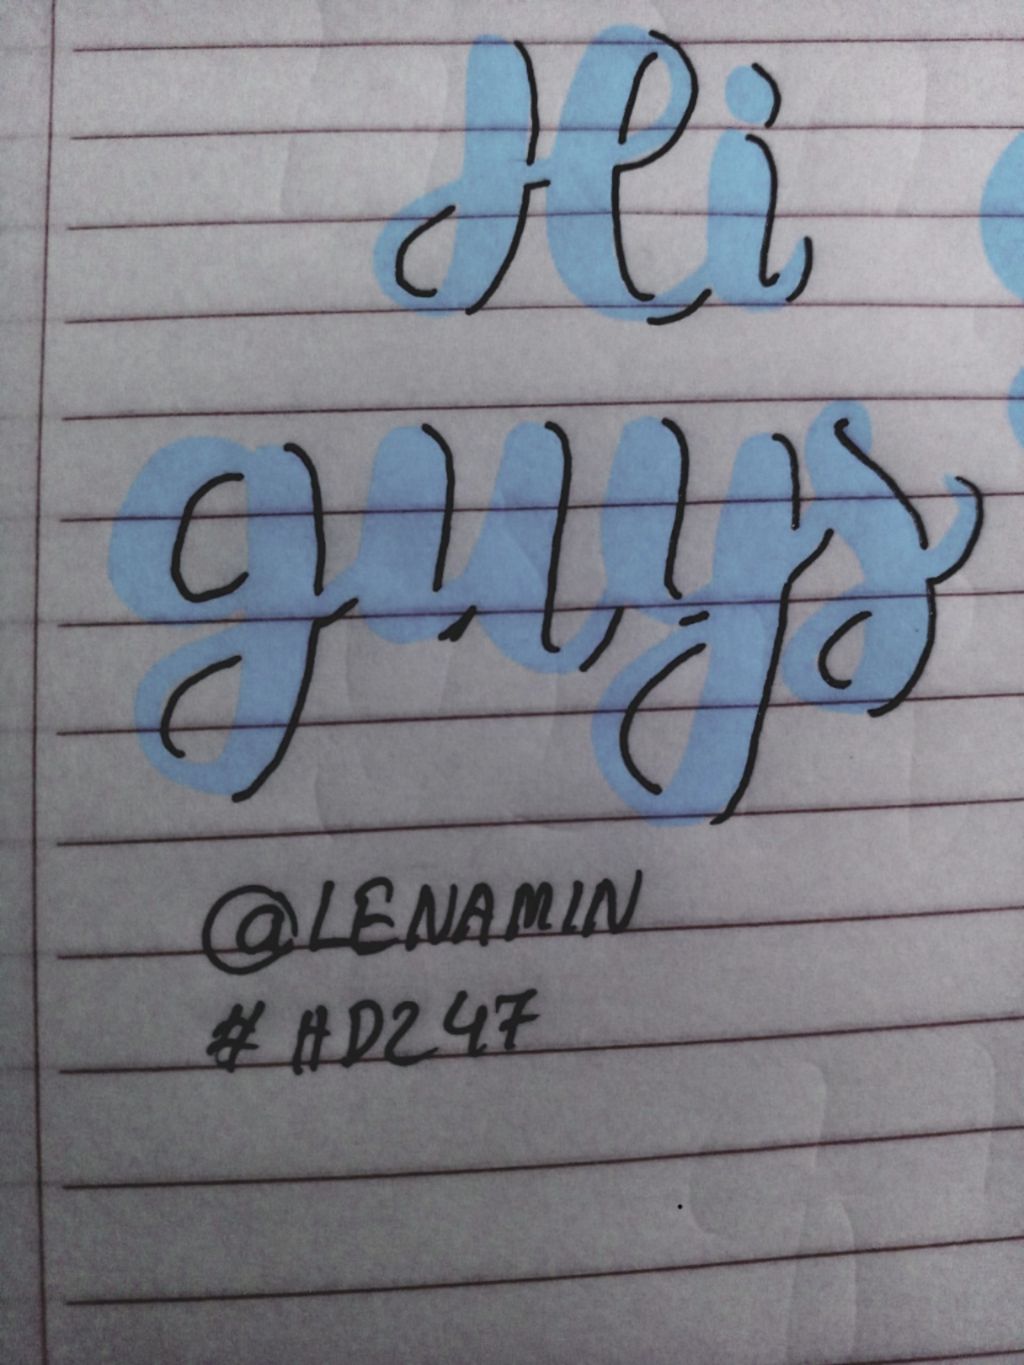 Hi
guys
@LENAMIN
#HD247